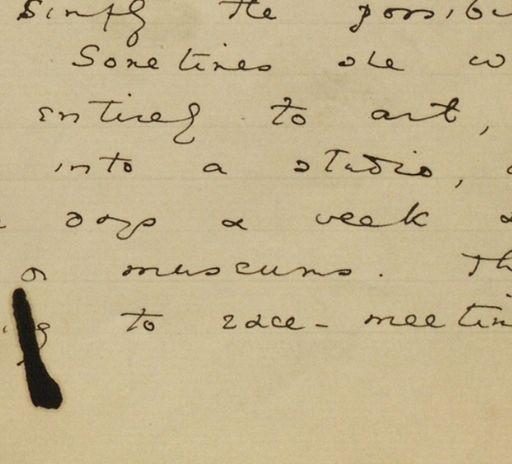 Simply the
Sometimes she
entirely to art,
into a studio,
days a week
or museums. Th
to race-meetin